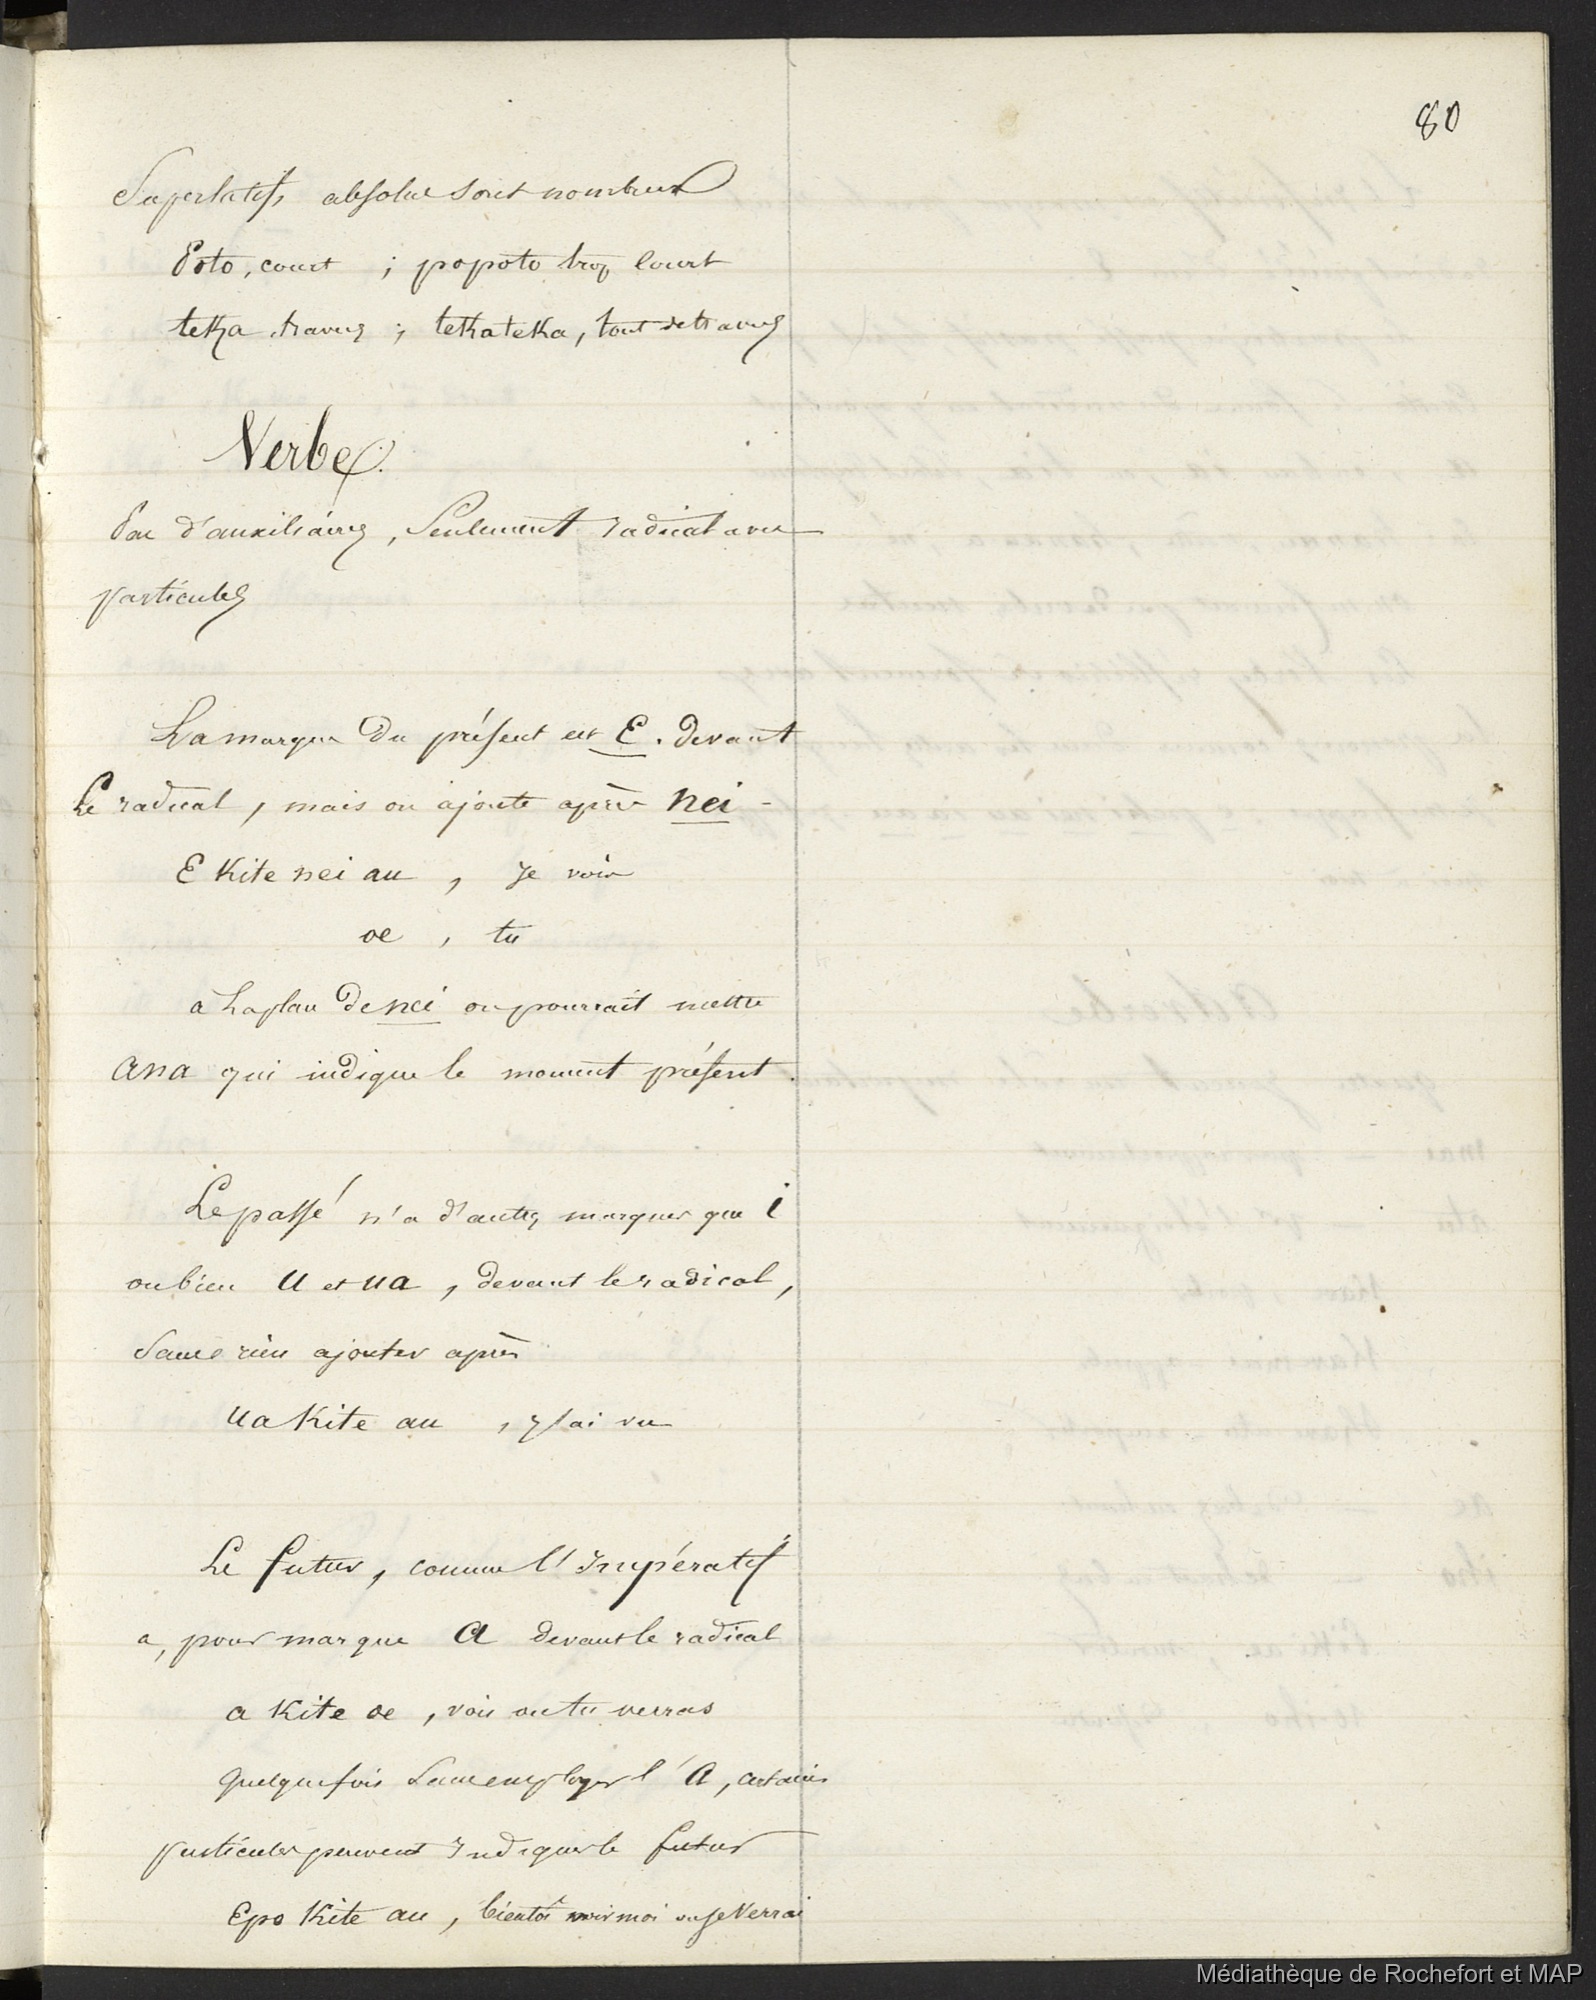 80
Superlatifs absolus sont nombreux
Poto, court ; popoto trop court
teka travers ; tekateka, tout de travers
Verbe.
Pas d'auxiliaires, Seulement radical avec
particules
La marque du présent est E. devant
Le radical, mais on ajoute après nei -
E Kite nei au , Je vois
oe , tu
a La place de nei on pourrait mettre
ana qui indique le moment présent.
Le passé n'a d'autres marques que i
ou bien U et ua , devant le radical,
Sans rien ajouter après
Ua Kite au , J'ai vu
Le futur, comme l'Impératif
a, pour marque A devant le radical
a Kite oe , vois ou tu verras
Quelquefois Sans employer l'A, certaines
particules peuvent Indiquer le futur
Epo Kite au , bientôt voir moi ou je Verrai
Médiathèque de Rochefort et MAP